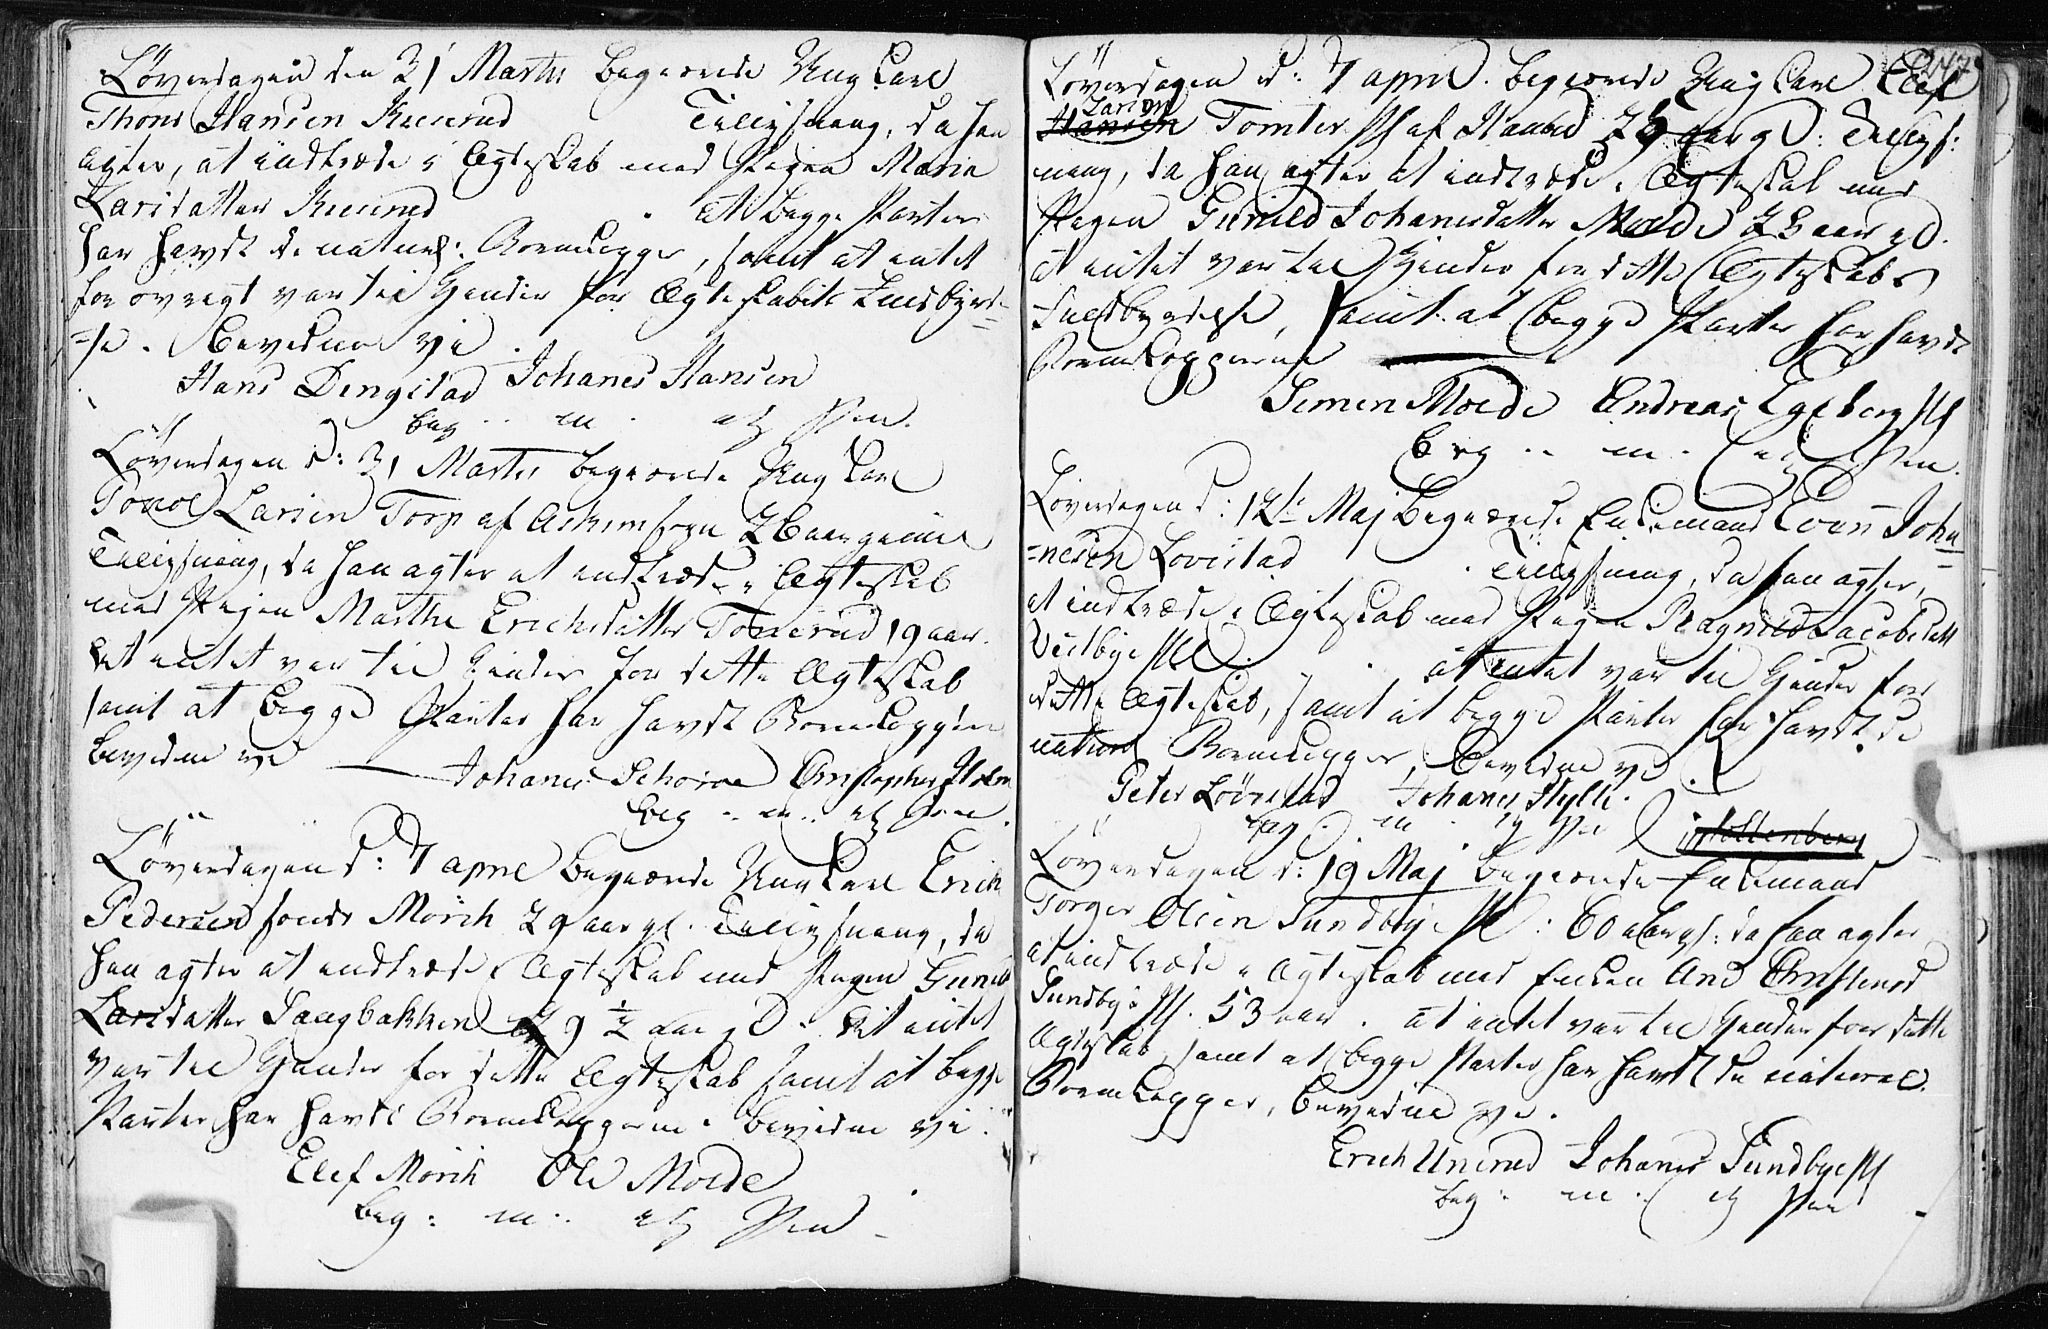 Løverdagen den 31 Martii begierede Ung Karl
Thore Hansen Kuserud Tillysning, da han
agter, at indtræde i Ægteskab med Pigen Maria
Larsdatter Kuserud at begge Parter
har havdt de naturl: Bornekopper, samt at intet
for øvrigt var til Hinder for Ægteskabets Fuldbyrd-
-se. Bevidner vi
Hans Dingstad Johanes Hansen
beg .. m. at Pen.
Løverdagen d: 31 Martii begierede Ung Karl
Larsen Torp af Askim sogn 26 aar gammel
Tillysning, da han agter at indtræde i Ægteskab
med Pigen Marthe Erichsdatter Tosserud 19 aar.
At intet var til Hinder for dette Ægteskab
samt at begge Parter har havdt Bornekopperne
bevidne vi Johanes Schoroe Christopher Holm
beg .. m.. at Pen.
Løverdagen d: 7 april begierede Ung Karl Erich
Pedersen fonds Mörch 29 aar gl. Tillysning, da
han agter at indtræde i Ægteskab med Pigen Gunild
Larsdatter Saugbakken 29 1/2 aar gl. At intet
var til Hinder for dette Ægteskab samt at begge
Parter har havdt Bornekopperne bevidne vi.
Elef Mörch Ole Moede
beg: m.. at Pen
247
Løverdagen d: 7 april begierede Ung Karl Elef
Larsen
Hansen Tomter Pl af Haabøl 29 aar gl: Tillys:
ning, da han agter at indtræde i Ægteskab med
Pigen Gunild Johanesdatter Moede 25 aar gl.
at intet var til Hinder for dette Ægteskabs
Fuldbyrdelse, samt at begge Parter har havdt
Bornekopperne
Simen Moede Andreas Egeberg Pl
beg .. m. at Pen.
Løverdagen d: 12te Maj begierede Enkemand Evan Joha-
-nesen Lovestad Tillysning, da han agter,
at indtræde i Ægteskab med Pigen Ragnild Jacobsdatt
Veidbye Pl. at intet var til Hinder for
dette Ægteskab, samt at begge Parter har havdt de
naturl Bornekopper, bevidne vi
Peter Løvestad Johanes Hylli.
beg. m. at Pen
Løverdagen d: 19 Maj begierede Enkemand
Torger Olsen Sundbye Pl: 60 aar gl: da han agter
at indtræde i Ægteskab med Enken And Christensd
Sundbye Pl. 53 aar. at intet var til Hinder for dette
Ægteskab, samt at begge Parter har havdt de naturl.
Bornekopper, bevidne vi.
Erich Unerud Johanes Sundbye Pl
beg: m.. at Pen